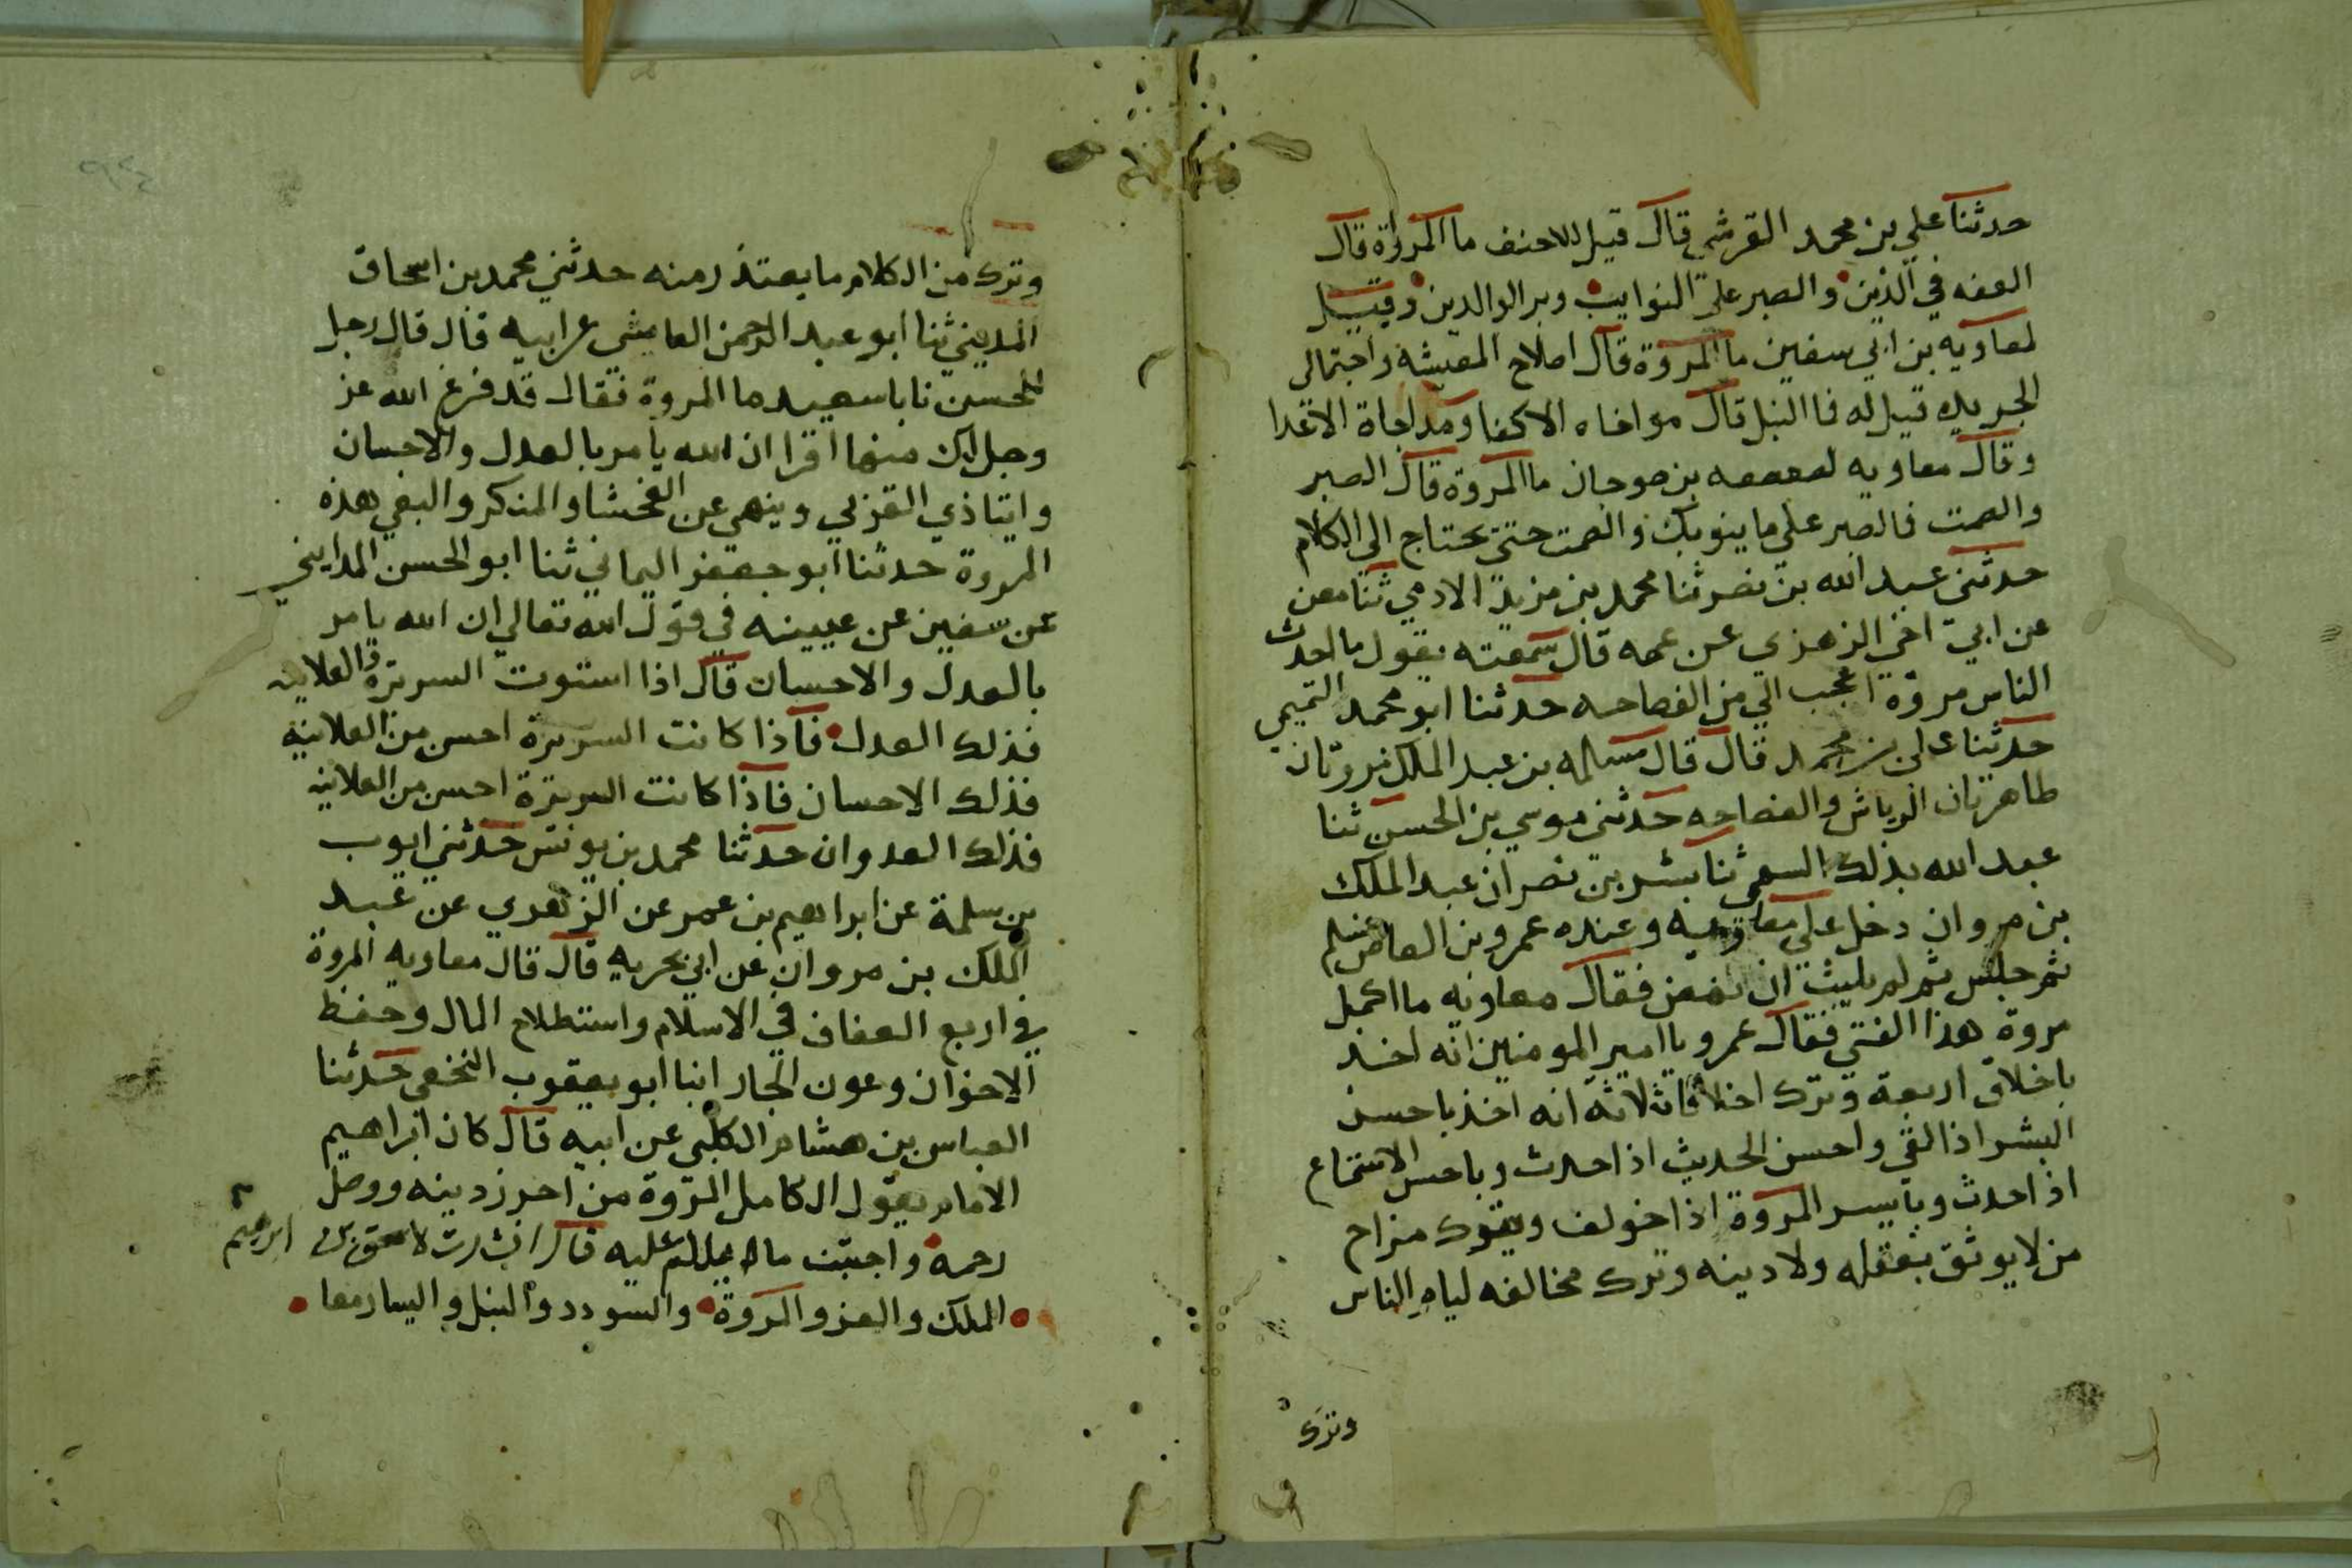 حدثنا علي بن محمد القرشي قال قيل للاحنف ما المروة قال
العفه في الدين والصبر على النوايب وبر الوالدين وقيل
لمعاويه بن ابي سفين ما المروة قال اصلاح المعيشة واحتمال
الجريره قيل له فما النبل قال مواخاه الاكفا ومداجاة الاعدا
وقال معاويه لصعصعه بن صوحان ما المروة قال الصبر
والصمت فالصبر على ما ينوبك والصمت حتى يحتاج الي الكلام
حدثني عبد الله بن نصر ثنا محمد بن مزيد الادمي ثنا معن
عن ابي اخي الزهري عن عمه قال سمعته يقول ما احدث
الناس مروة اعجب الي من الفصاحه حدثنا ابو محمد التميمي
حدثنا علي بن محمد قال قال مسلمه بن عبد الملك مروتان
طاهرتان الرياش والفصاحه حدثني موسي بن الحسن ثنا
عبد الله بذلك السهمي ثنا بشر بن نصر ان عبد الملك
بن مروان دخل علي معاويه وعنده عمرو بن العاص فسلم
ثم جلس ثم لم يلبث ان نهض فقال معاويه ما اكمل
مروة هذا الفتي فقال عمرو يا امير المومنين انه اخذ
باخلاق اربعة وترك اخلاقا ثلاثه انه اخذ باحسن
البشر اذا لقي واحسن الحديث اذا حدث وباحسن الاستماع
اذا حدث وبايسر المروة اذا خولف وترك مزاح
من لا يوثق بعقله ولا دينه وترك مخالفه ليام الناس
وترك
وترك من الكلام ما يعتذر منه حدثني محمد بن اسحاق
المديني ثنا ابو عبد الرحمن العايشي عن ابيه قال قال رجل
للحسن يا با سعيد ما المروة فقال قد فرغ الله عز
وجل لك منها اقرا ان الله يامر بالعدل والاحسان
وايتا ذي القربي وينهي عن الفحشا والمنكر والبغي هذه
المروة حدثنا ابو جعفر اليماني ثنا ابو الحسن المدايني
عن سفين عن عيينه في قول الله تعالي ان الله يامر
بالعدل والاحسان قال اذا استوت السريرة والعلانيه
فذلك العدل فاذا كانت السريرة احسن من العلانية
فذلك الاحسان فاذا كانت السريرة احسن من العلانيه
فذلك العدوان حدثنا محمد بن يونس حدثني ايوب
بن سلمة عن ابراهيم بن عمر عن الزهري عن عبد
الملك بن مروان عن ابي بحريه قال قال معاويه المروة
في اربع العفاف في الاسلام واستطلاح المال وحفظ
الاخوان وعون الجار انبا ابو يعقوب النخعي حدثنا
العباس بن هشام الكلبي عن ابيه قال كان ابراهيم
الامام يقول الكامل المروة من احرز دينه ووصل
رحمه واجتنب ما يلام عليه قال انشدت لاسحق بن ابرهيم
الملك والعز والمروة والسودد والنبل واليسار معا